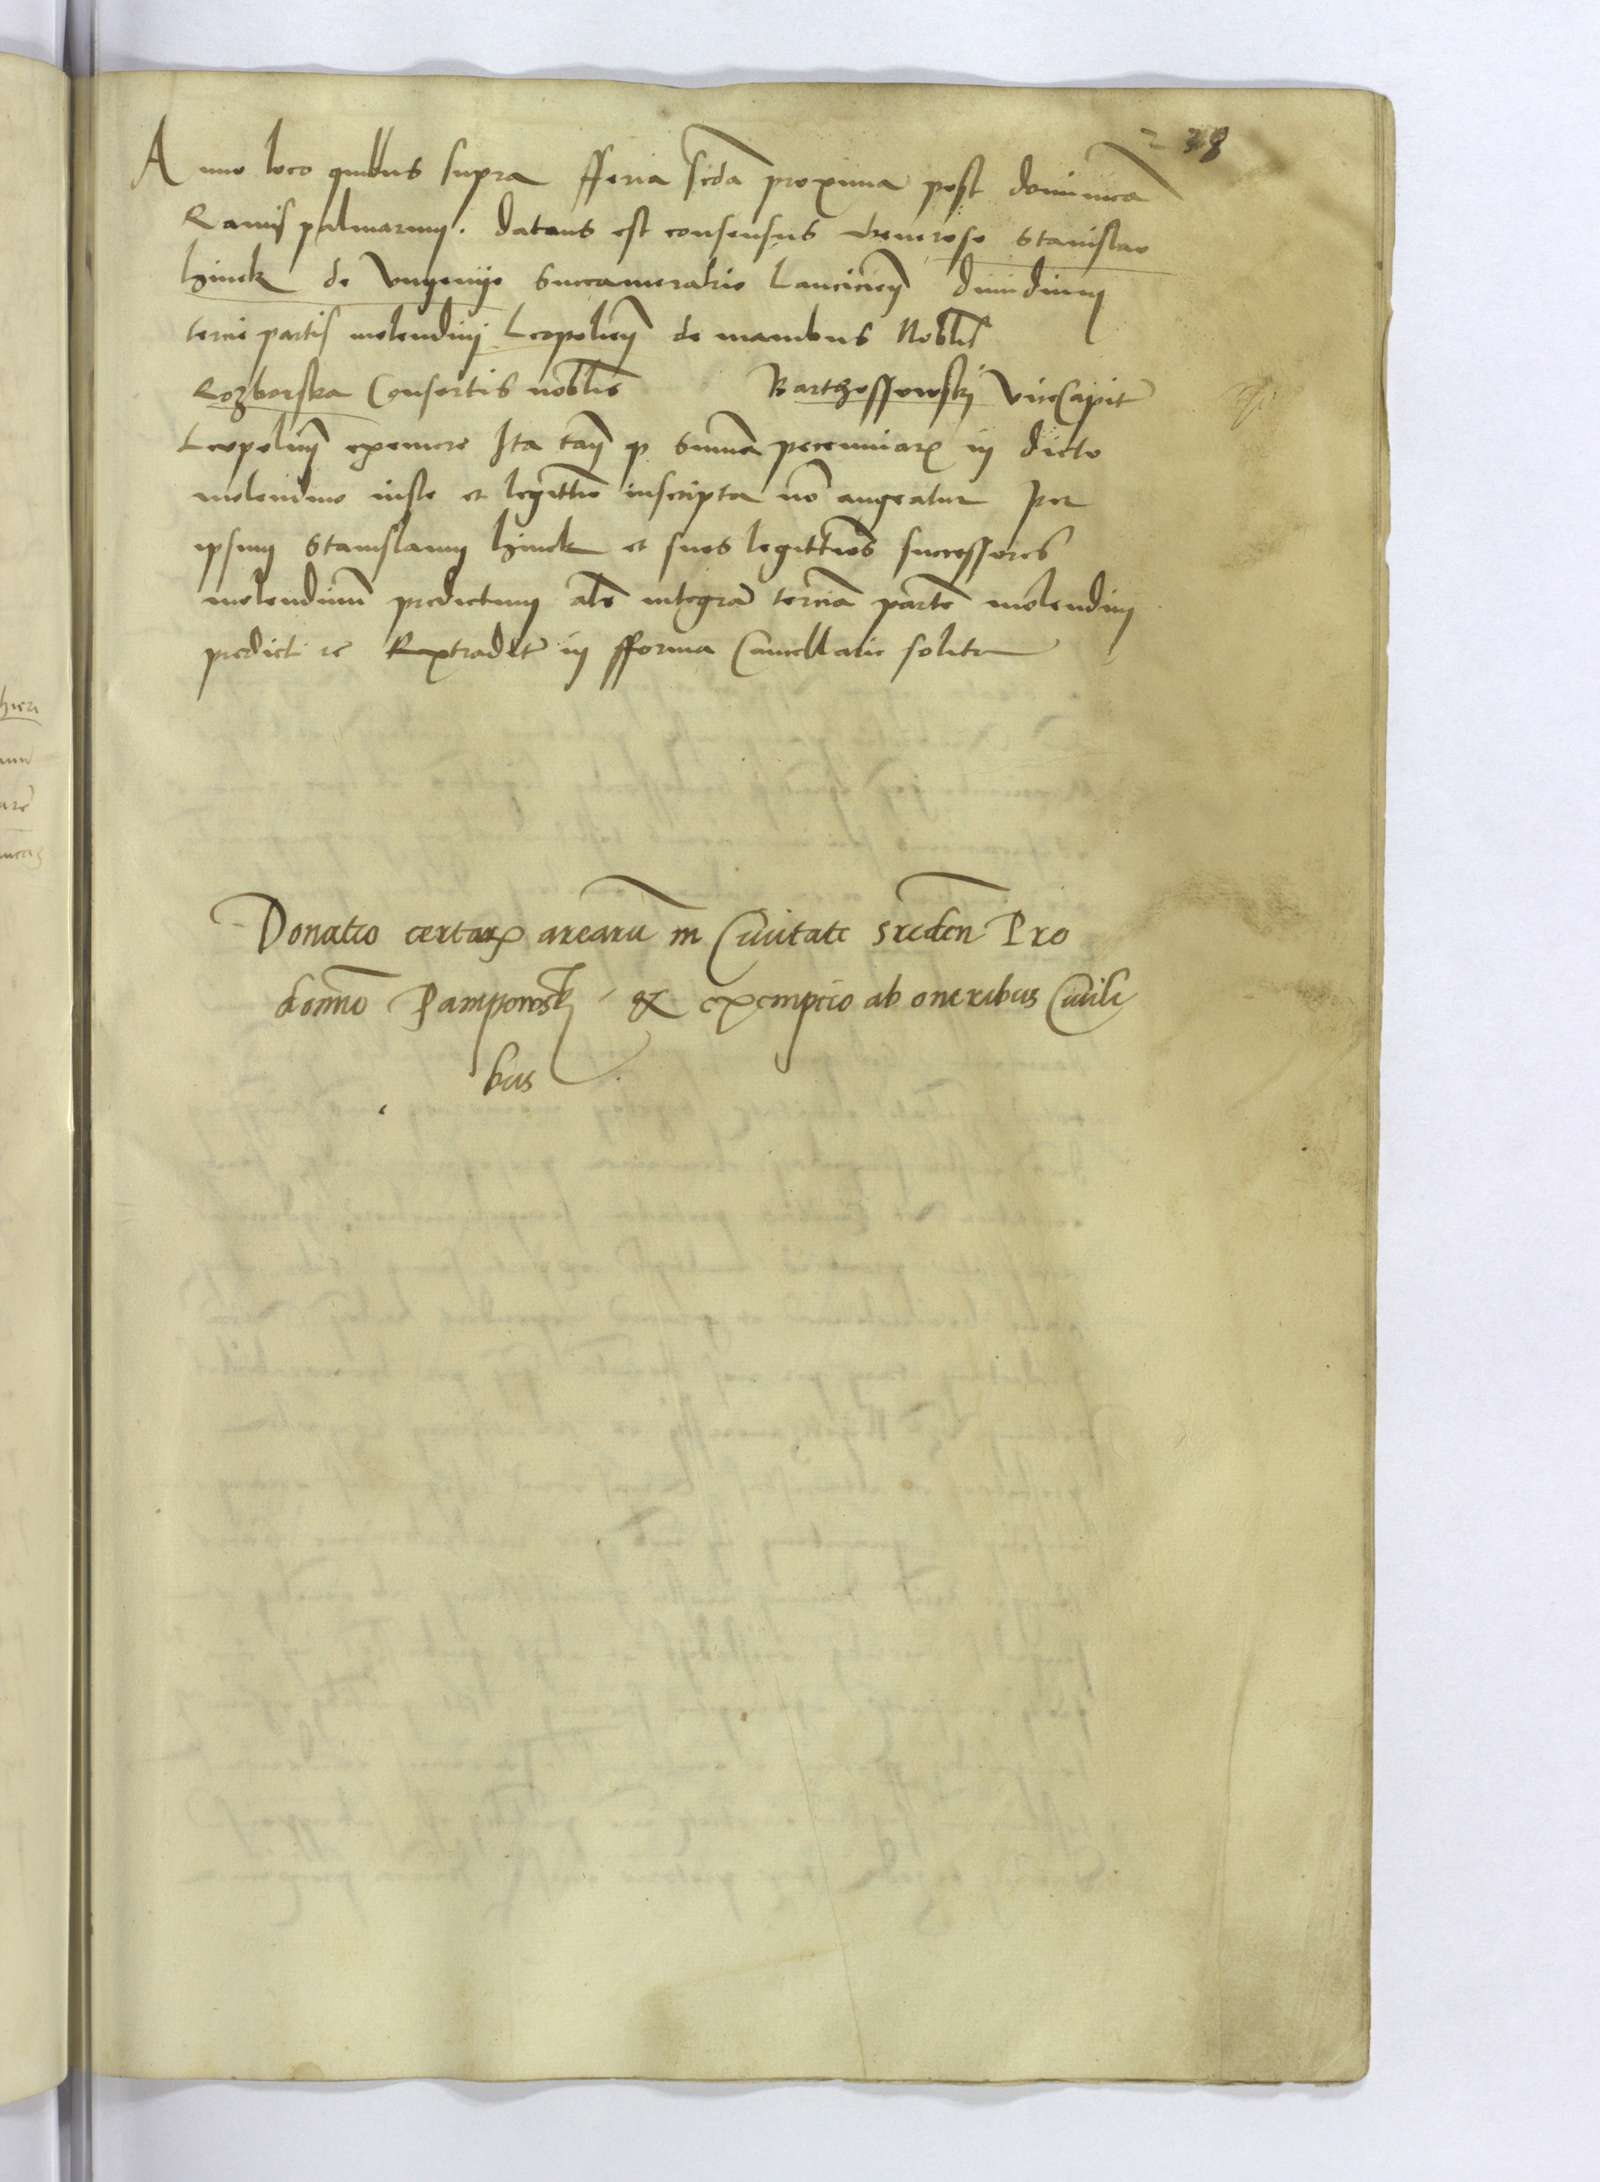 38
Anno loco quibus supra fferia scda proxima post dominica
Ramispalmarum. datus est consensus Generoso Stanislao
hinek de Vnyeniije Succamerario Lancicien dimidium
tercie partis molendini Leopolien de manibus Nobl
Rozborska Consortis noblis Barthossowskj ViceCapit
Leopolien exemere Ita tam q Summa pecuniar in dicto
molendino iuste et legittie inscripta no augeatur Per
ipsum Stanislaum hinek et suos legittios successores
molendinu predictum als integra tercia parte molendini
predict re Rextradet in fforma Cancellarie solita
Donatio certar arearu in Ciuitate sreden Pro
domno Pampowskj & exempcio ab oneribus Ciuili
bus
hieri